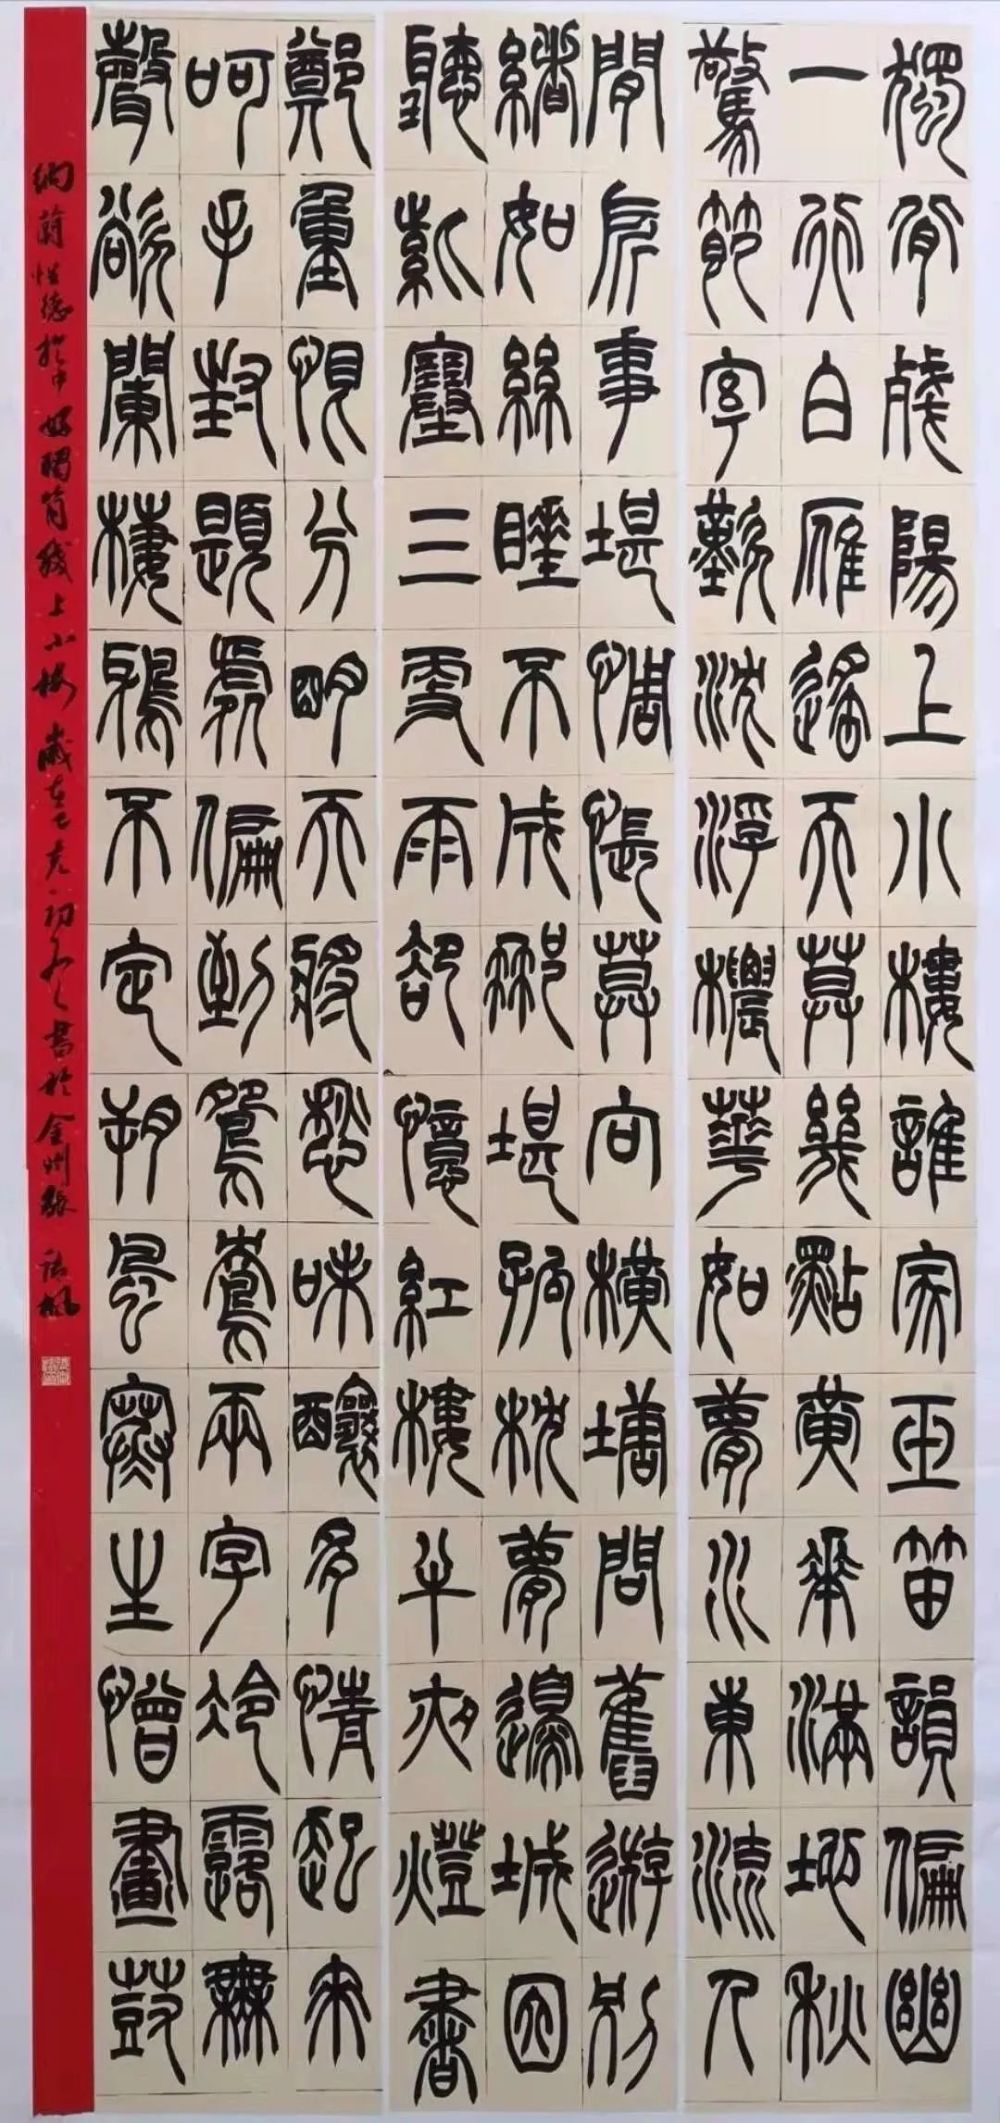 獨背殘陽上小樓誰家玉笛韻偏幽
一行白雁遙天暮幾點黃花滿地秋
驚節序歎沈浮穠華如夢水東流人
間所事堪惆悵莫向橫塘問舊遊別
緒如絲睡不成那堪孤枕夢邊城因
聽紫塞三更雨卻憶紅樓半夜燈書
鄭重恨分明天將愁味釀多情起來
呵手封題處偏到鴛鴦兩字冷露無
聲欲闌棲鴉不定朔風寒生憎畫鼓
納蘭性德於中好獨背殘上小樓歲在己亥初冬書於金州張